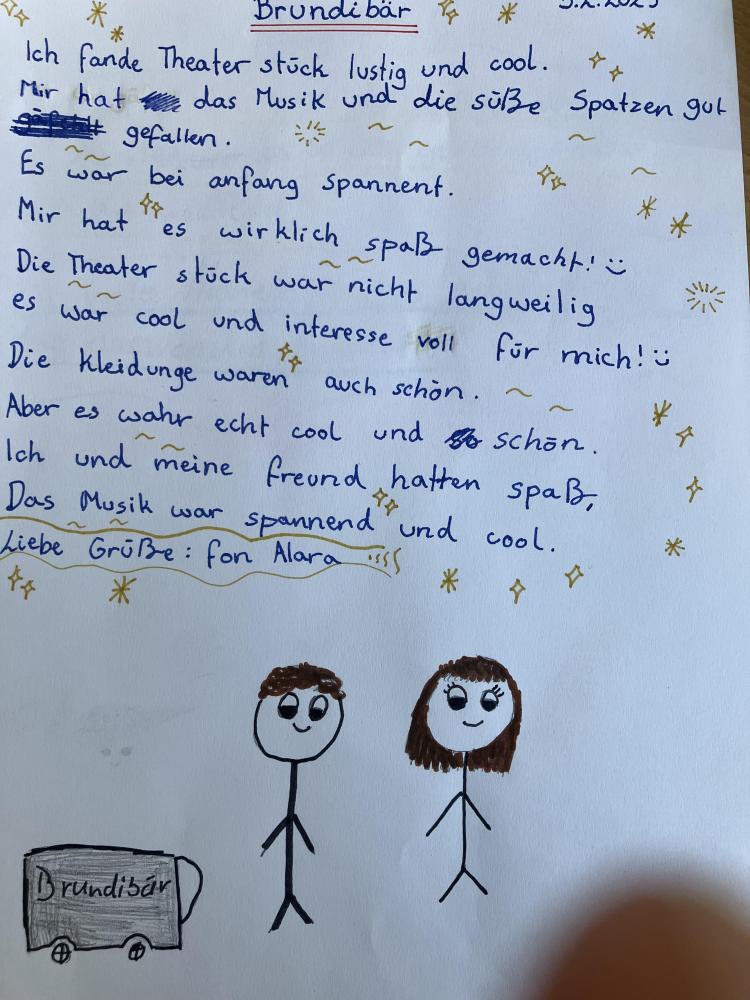 Brundibär
Ich fande Theater stück lustig und cool.
Mir hat das Musik und die süße Spatzen gut
gefallen.
Es war bei anfang spannent.
Mir hat es wirklich spaß gemacht!
Die Theater stück war nicht langweilig
es war cool und interesse voll für mich!
Die kleidunge waren auch schön.
Aber es wahr echt cool und schön.
Ich und meine freund hatten spaß,
Das Musik war spannend und cool.
Liebe Grüße: fon Alara
Brundibär